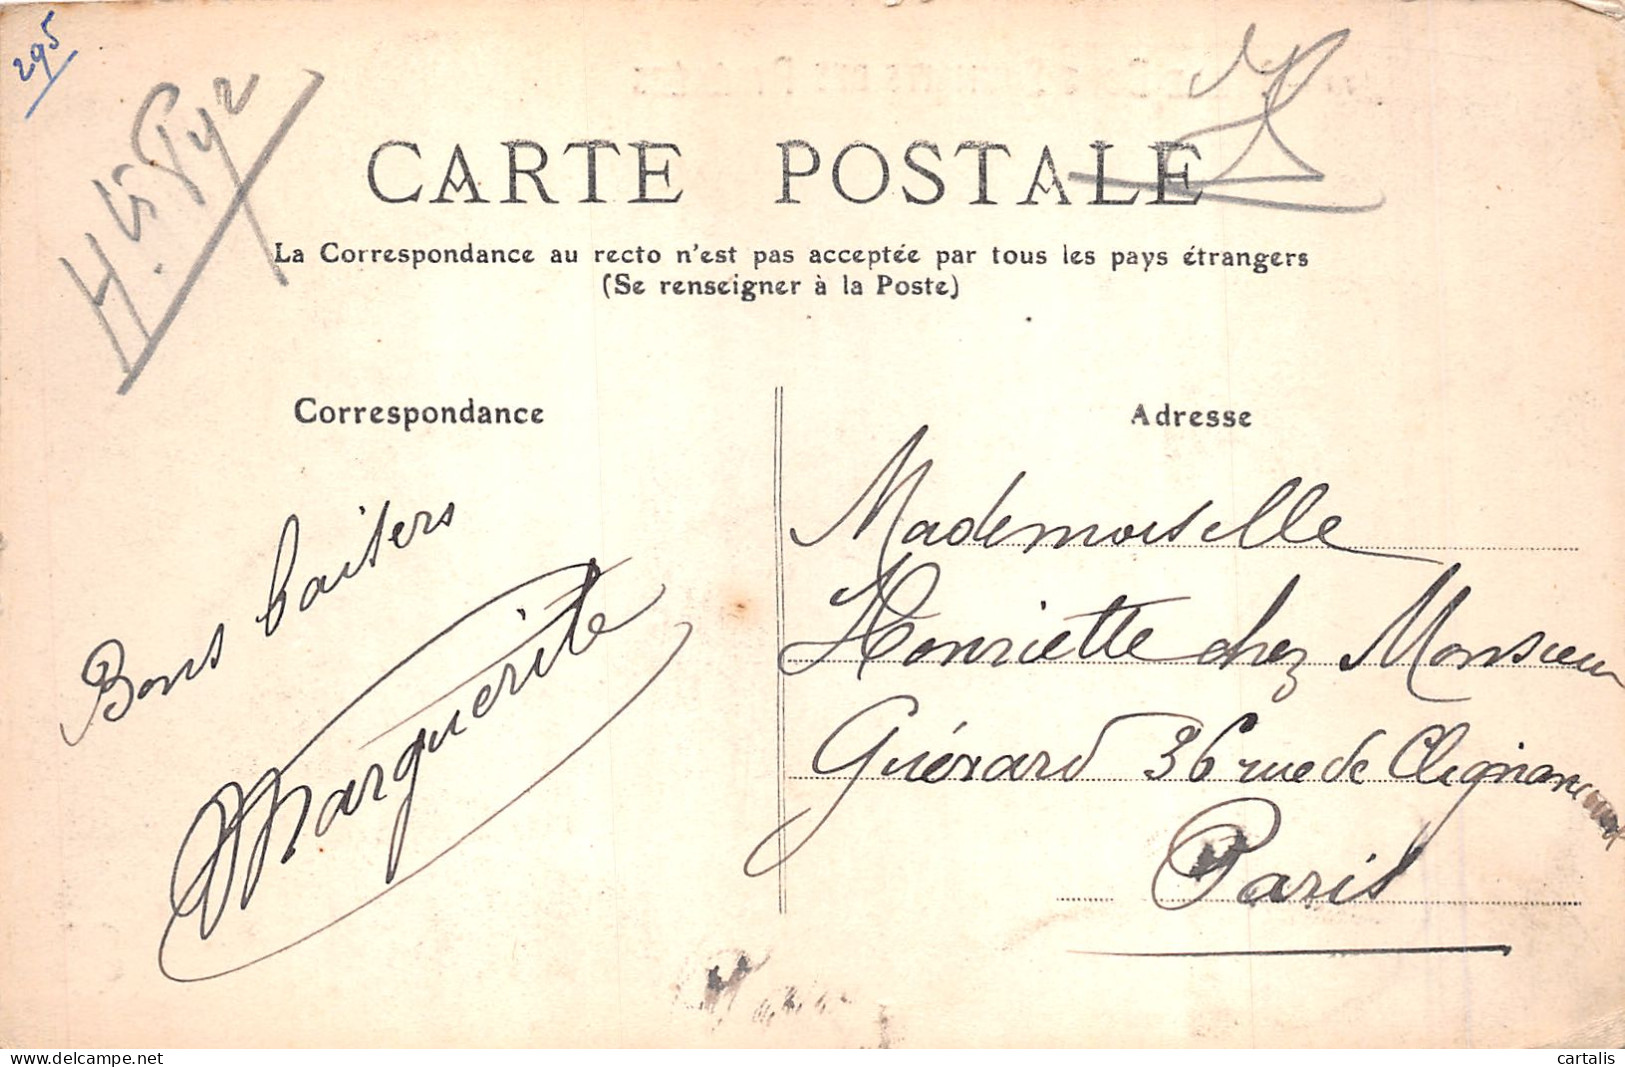 295
CARTE POSTALE
La Correspondance au recto n'est pas acceptée par tous les pays étrangers
(Se renseigner à la Poste)
Correspondance
Adresse
Bons baisers
Marguerite
Mademoiselle
Henriette chez Monsieur
Guérard 36 rue de Clignancourt
Paris
cartalis